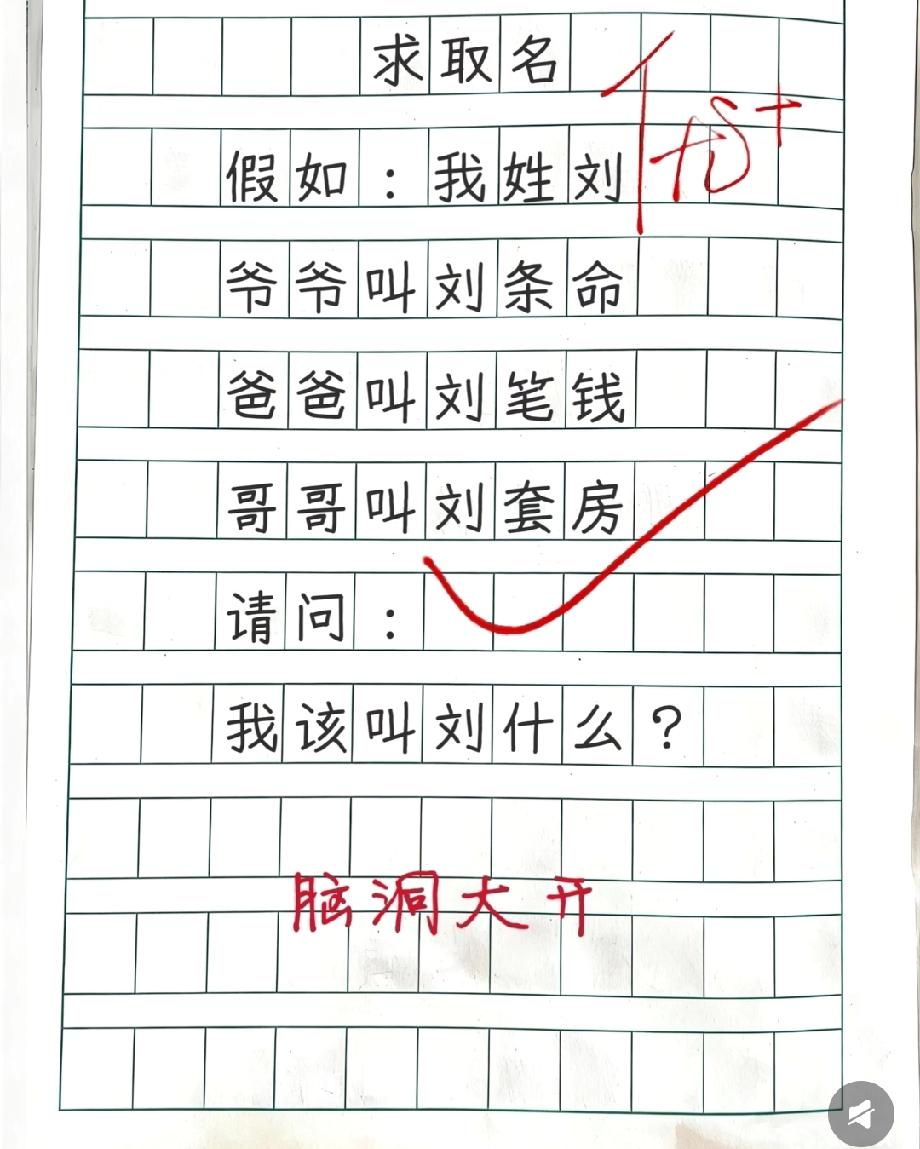 求取名
优+
假如：我姓刘
爷爷叫刘条命
爸爸叫刘笔钱
哥哥叫刘套房
请问：
我该叫刘什么？
脑洞大开